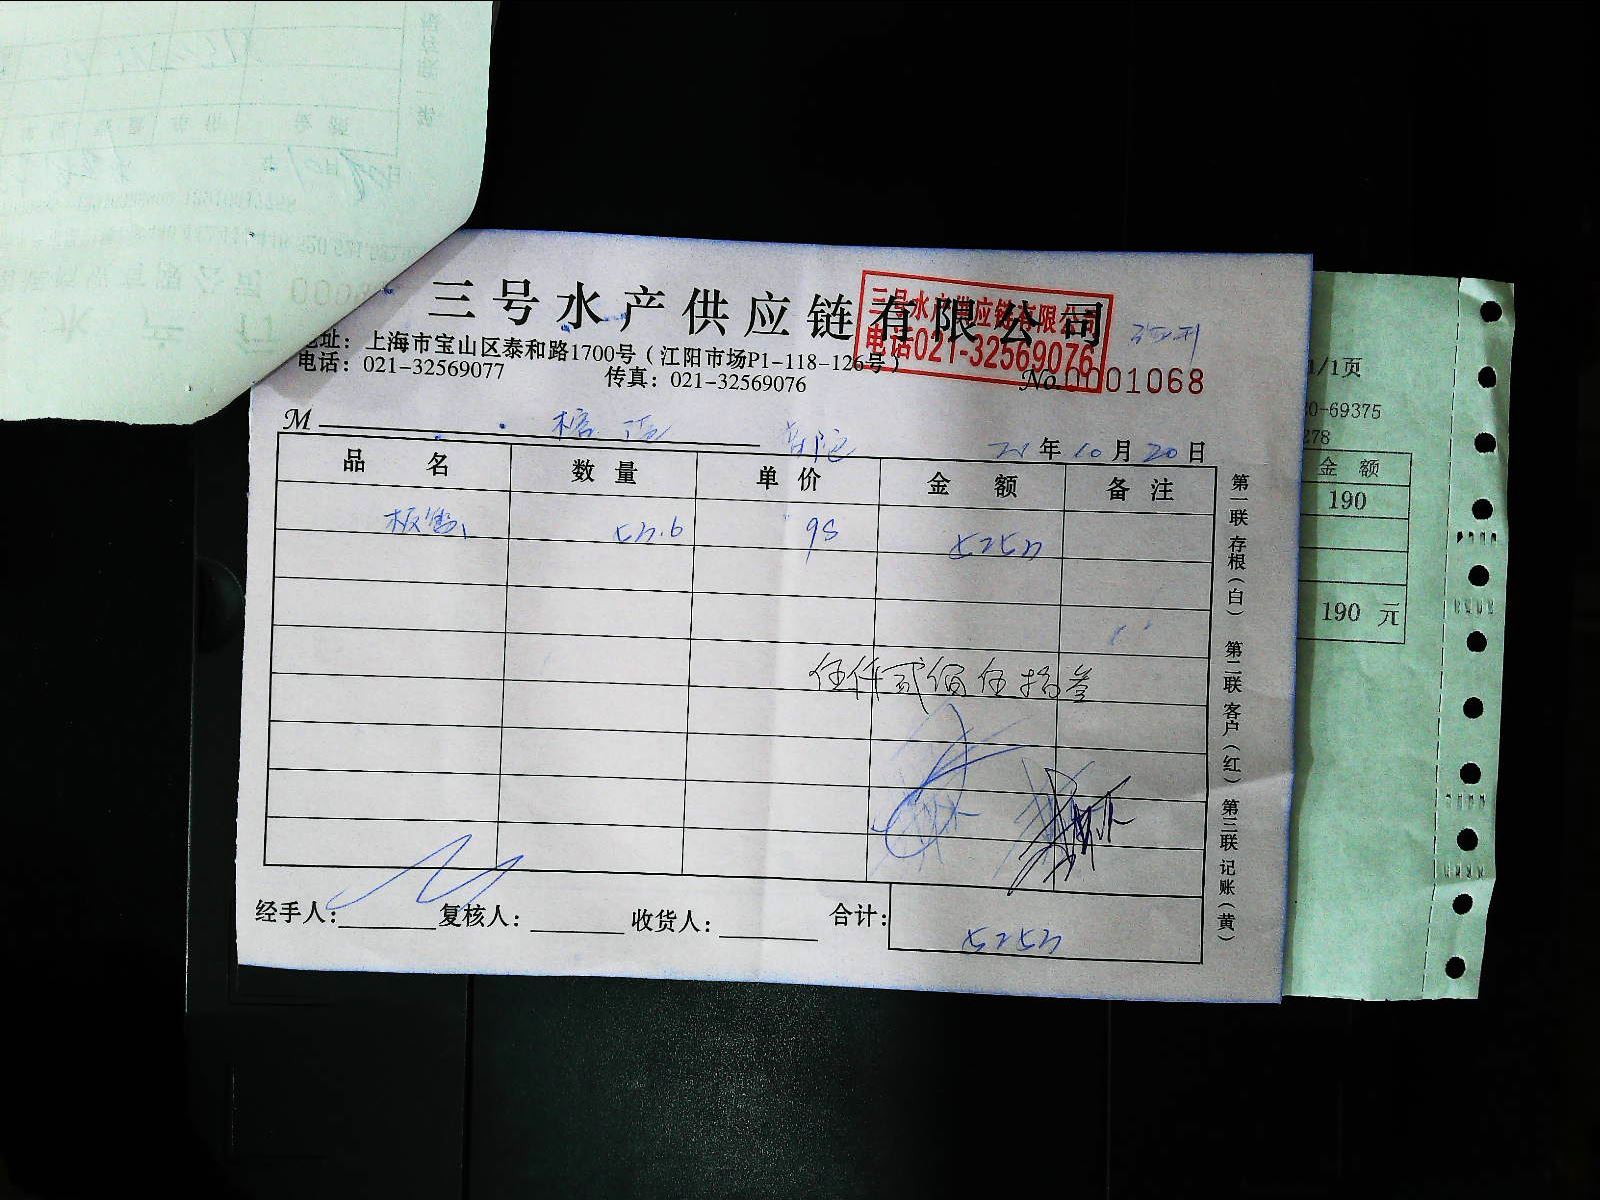 三号水产供应链有限公司
三号水产供应链有限公司
电话021-32569076
地址：上海市宝山区泰和路1700号（江阳市场P1-118-126号）
电话：021-32569077 传真：021-32569076
No 0001068
M
21年10月20日
品名 数量 单价 金额 备注
53.6 98 5253
伍仟贰佰伍拾叁
经手人： 复核人： 收货人： 合计：5253
第一联 存根（白） 第二联 客户（红） 第三联 记账（黄）
1/1页
0-69375
278
金额
190
190 元